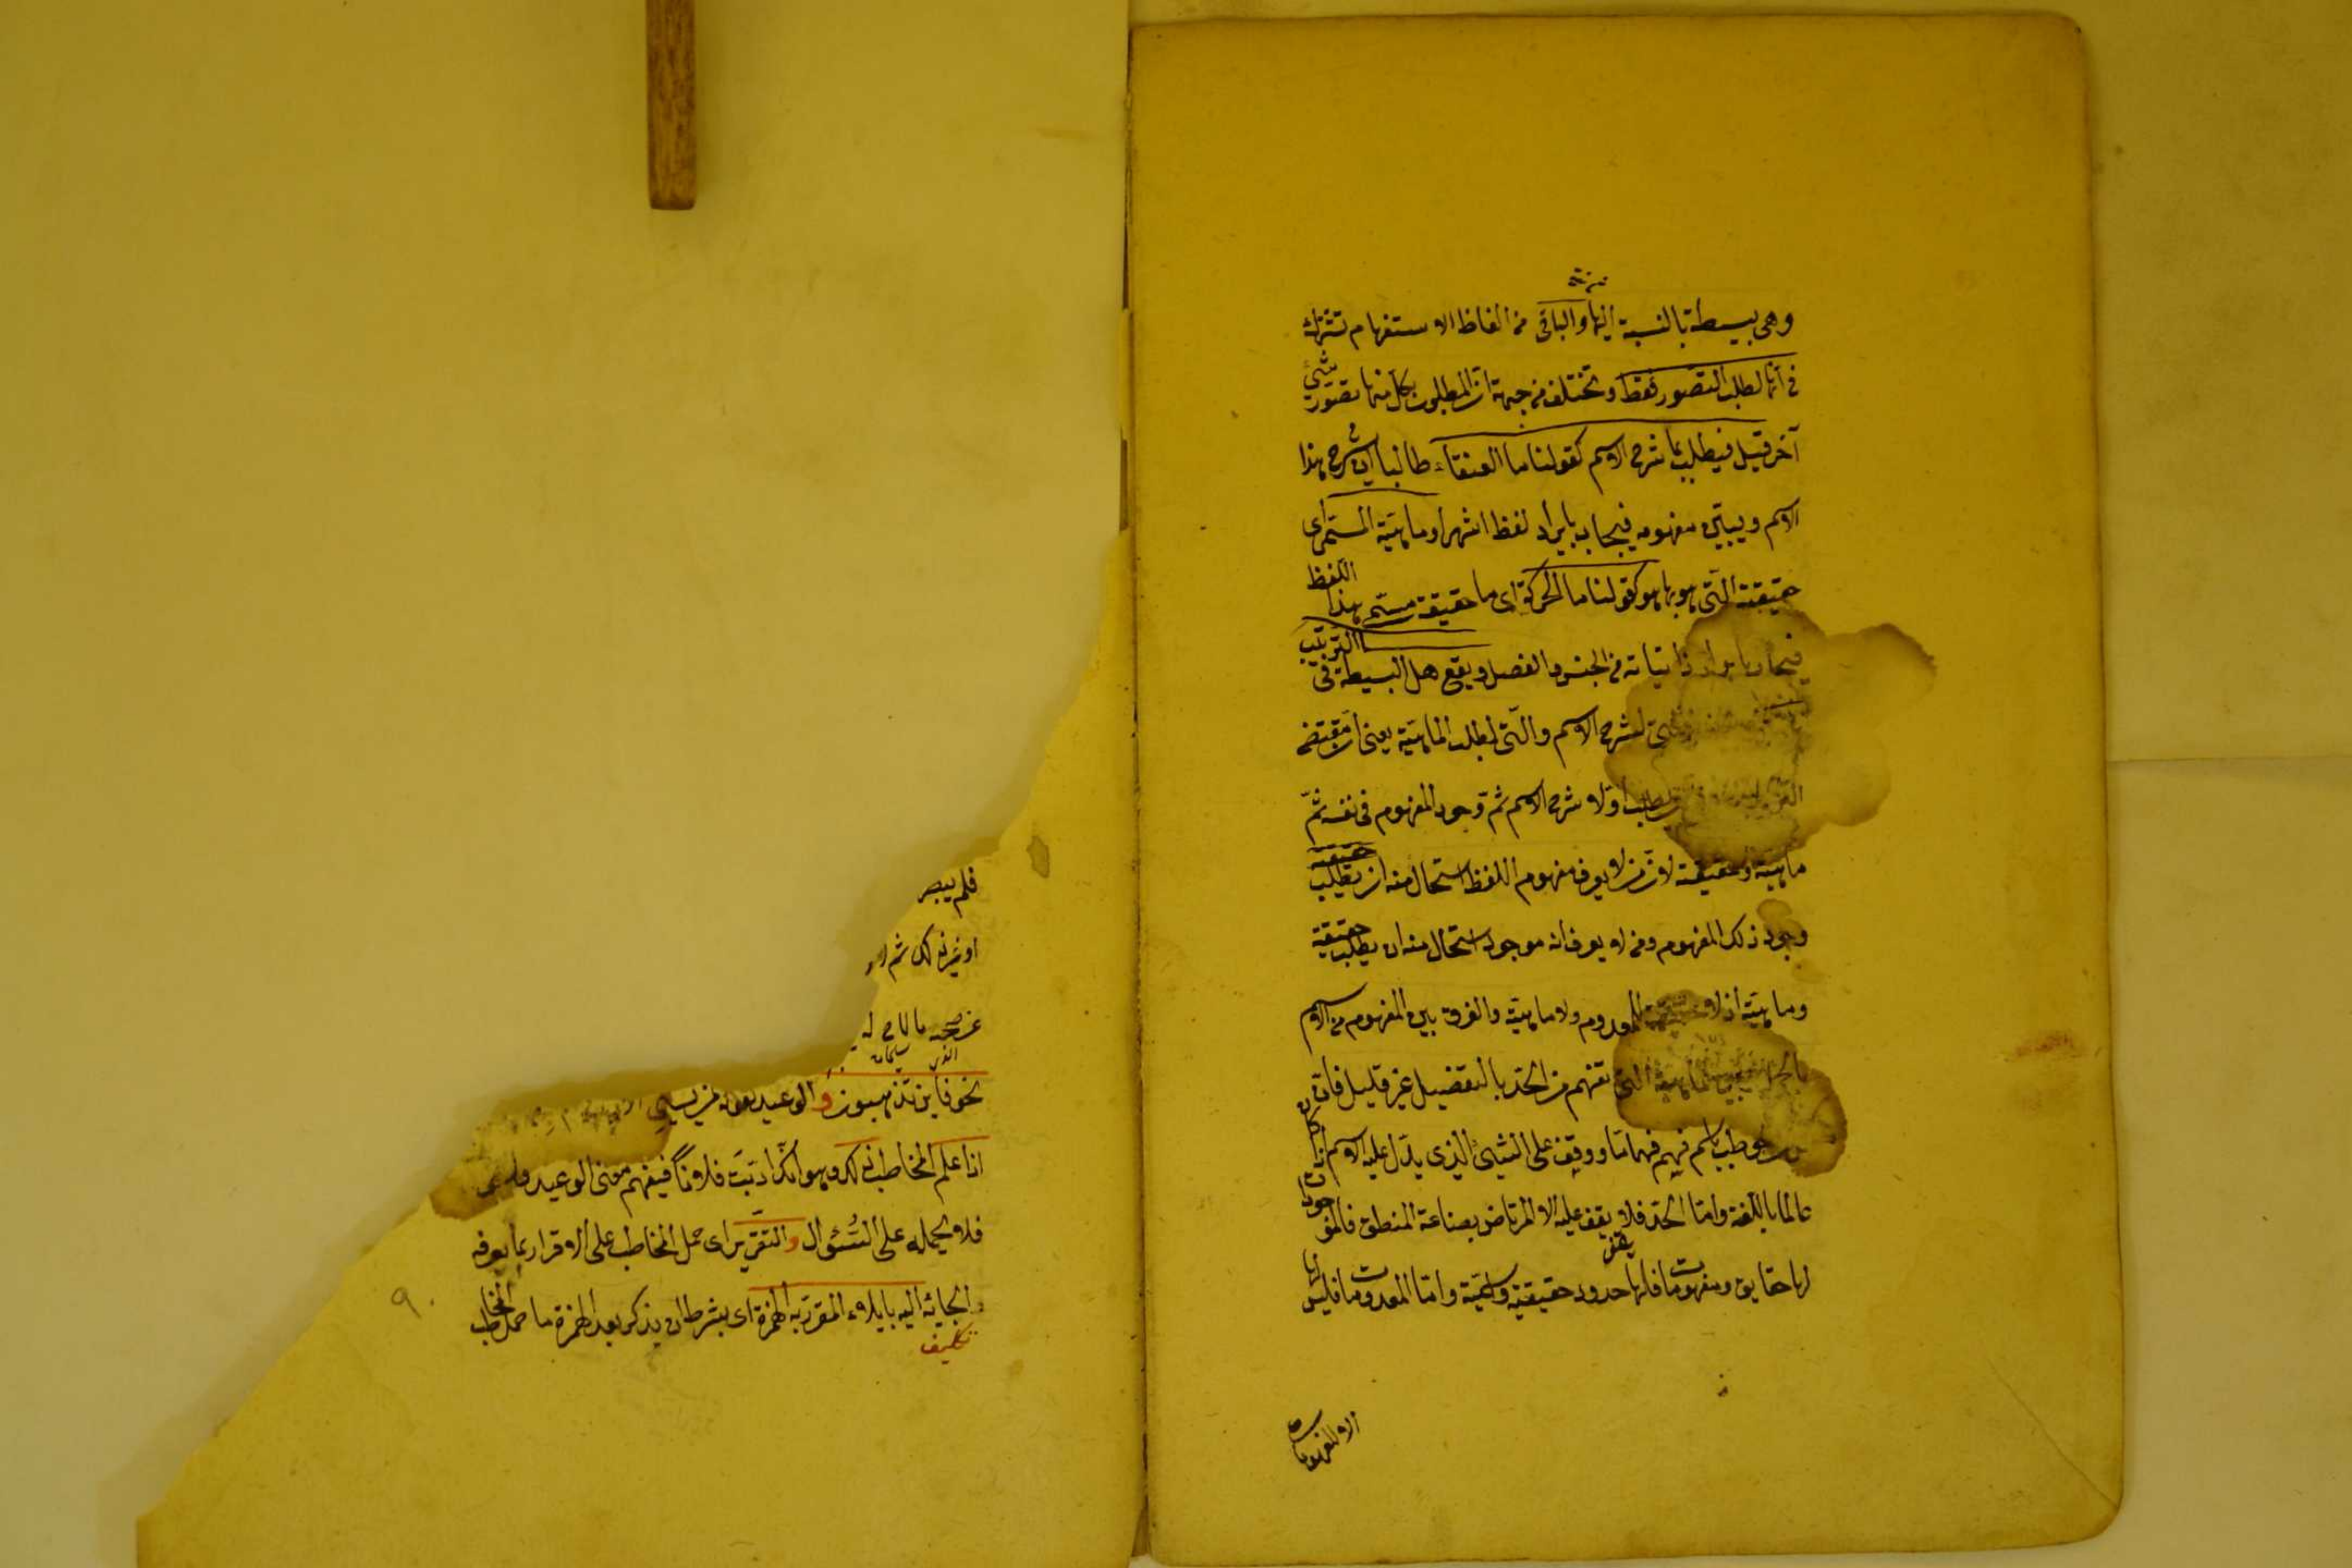 وهى بسيطة بالنسبة اليها والباقى من الفاظ الاستفهام تشترك
فى انها لطلب التصور فقط وتختلف من جهة ان المطلوب بكل منها تصور شئ
آخر قيل فيطلب بما شرح الاسم كقولنا ما العنقاء طالبا ان يشرح هذا
الاسم ويبين مفهومه فيجاب بايراد لفظ اشهر او ماهية المسمى اى
حقيقته التى هو بها هو كقولنا ما الحركة اى ما حقيقة مسمى هذا اللفظ
فيجاب بايراد ذاتياته من الجنس والفصل ويقع هل البسيطة فى الترتيب
لشرح الاسم والتى لطلب الماهية يعنى ان مقتضى
يطلب اولا شرح الاسم ثم وجود المفهوم فى نفسه ثم
ماهيته وحقيقته لان من لا يعرف مفهوم اللفظ استحال منه ان يطلب
وجود ذلك المفهوم ومن لا يعرف انه موجود استحال منه ان يطلب حقيقته
وماهيته اذ لا حقيقة للمعدوم ولا ماهية والفرق بين المفهوم من الاسم
بالجملة وبين الماهية التى تفهم من الحد بالتفصيل غير قليل فان
من خوطب باسم فهم فهما ما ووقف على الشئ الذى يدل عليه الاسم اذا كان
عالما باللغة واما الحد فلا يقف عليه الا المرتاض بصناعة المنطق فالموجودات
لها حقايق ومفهومات فلها حدود حقيقية واسمية واما المعدومات فليس لها
الا المفهومات
فلم يبصر
او غير ذلك ثم
نحو فاين تذهبون والوعيد كقولك لمن يسيئ
اذا علم المخاطب ذلك وهو انك ادبت فلانا فيفهم معنى الوعيد
فلا يحمله على السؤال والتقرير اى حمل المخاطب على الاقرار بما يعرفه
والجائه اليه بايلاء المقرر به الهمزة اى بشرط ان يذكر بعد الهمزة ما حمل المخاطب
تكليف
٩٠